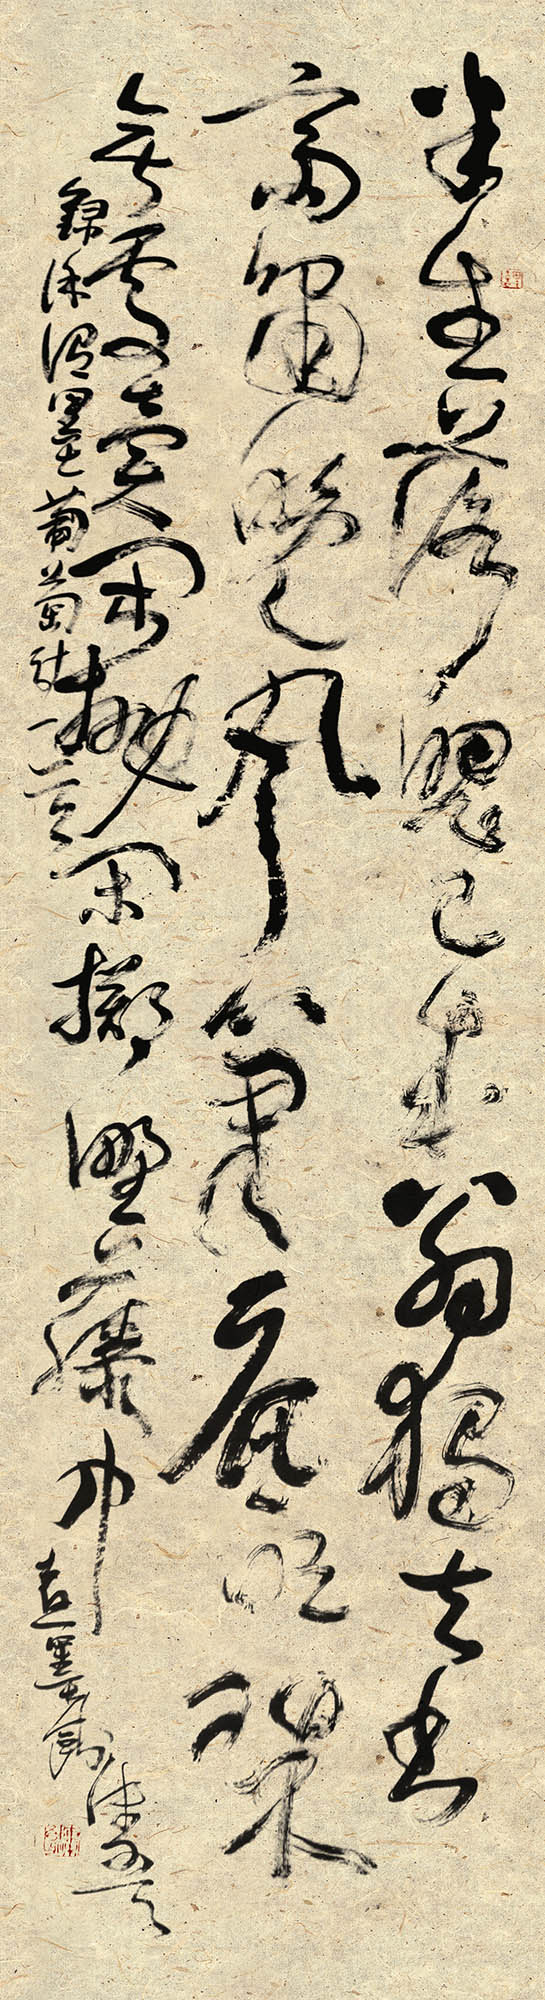 半生落魄已成翁獨立書
齋嘯晚風筆底明珠
無處賣閑拋閑擲野藤中
錄徐渭墨葡萄詩一首